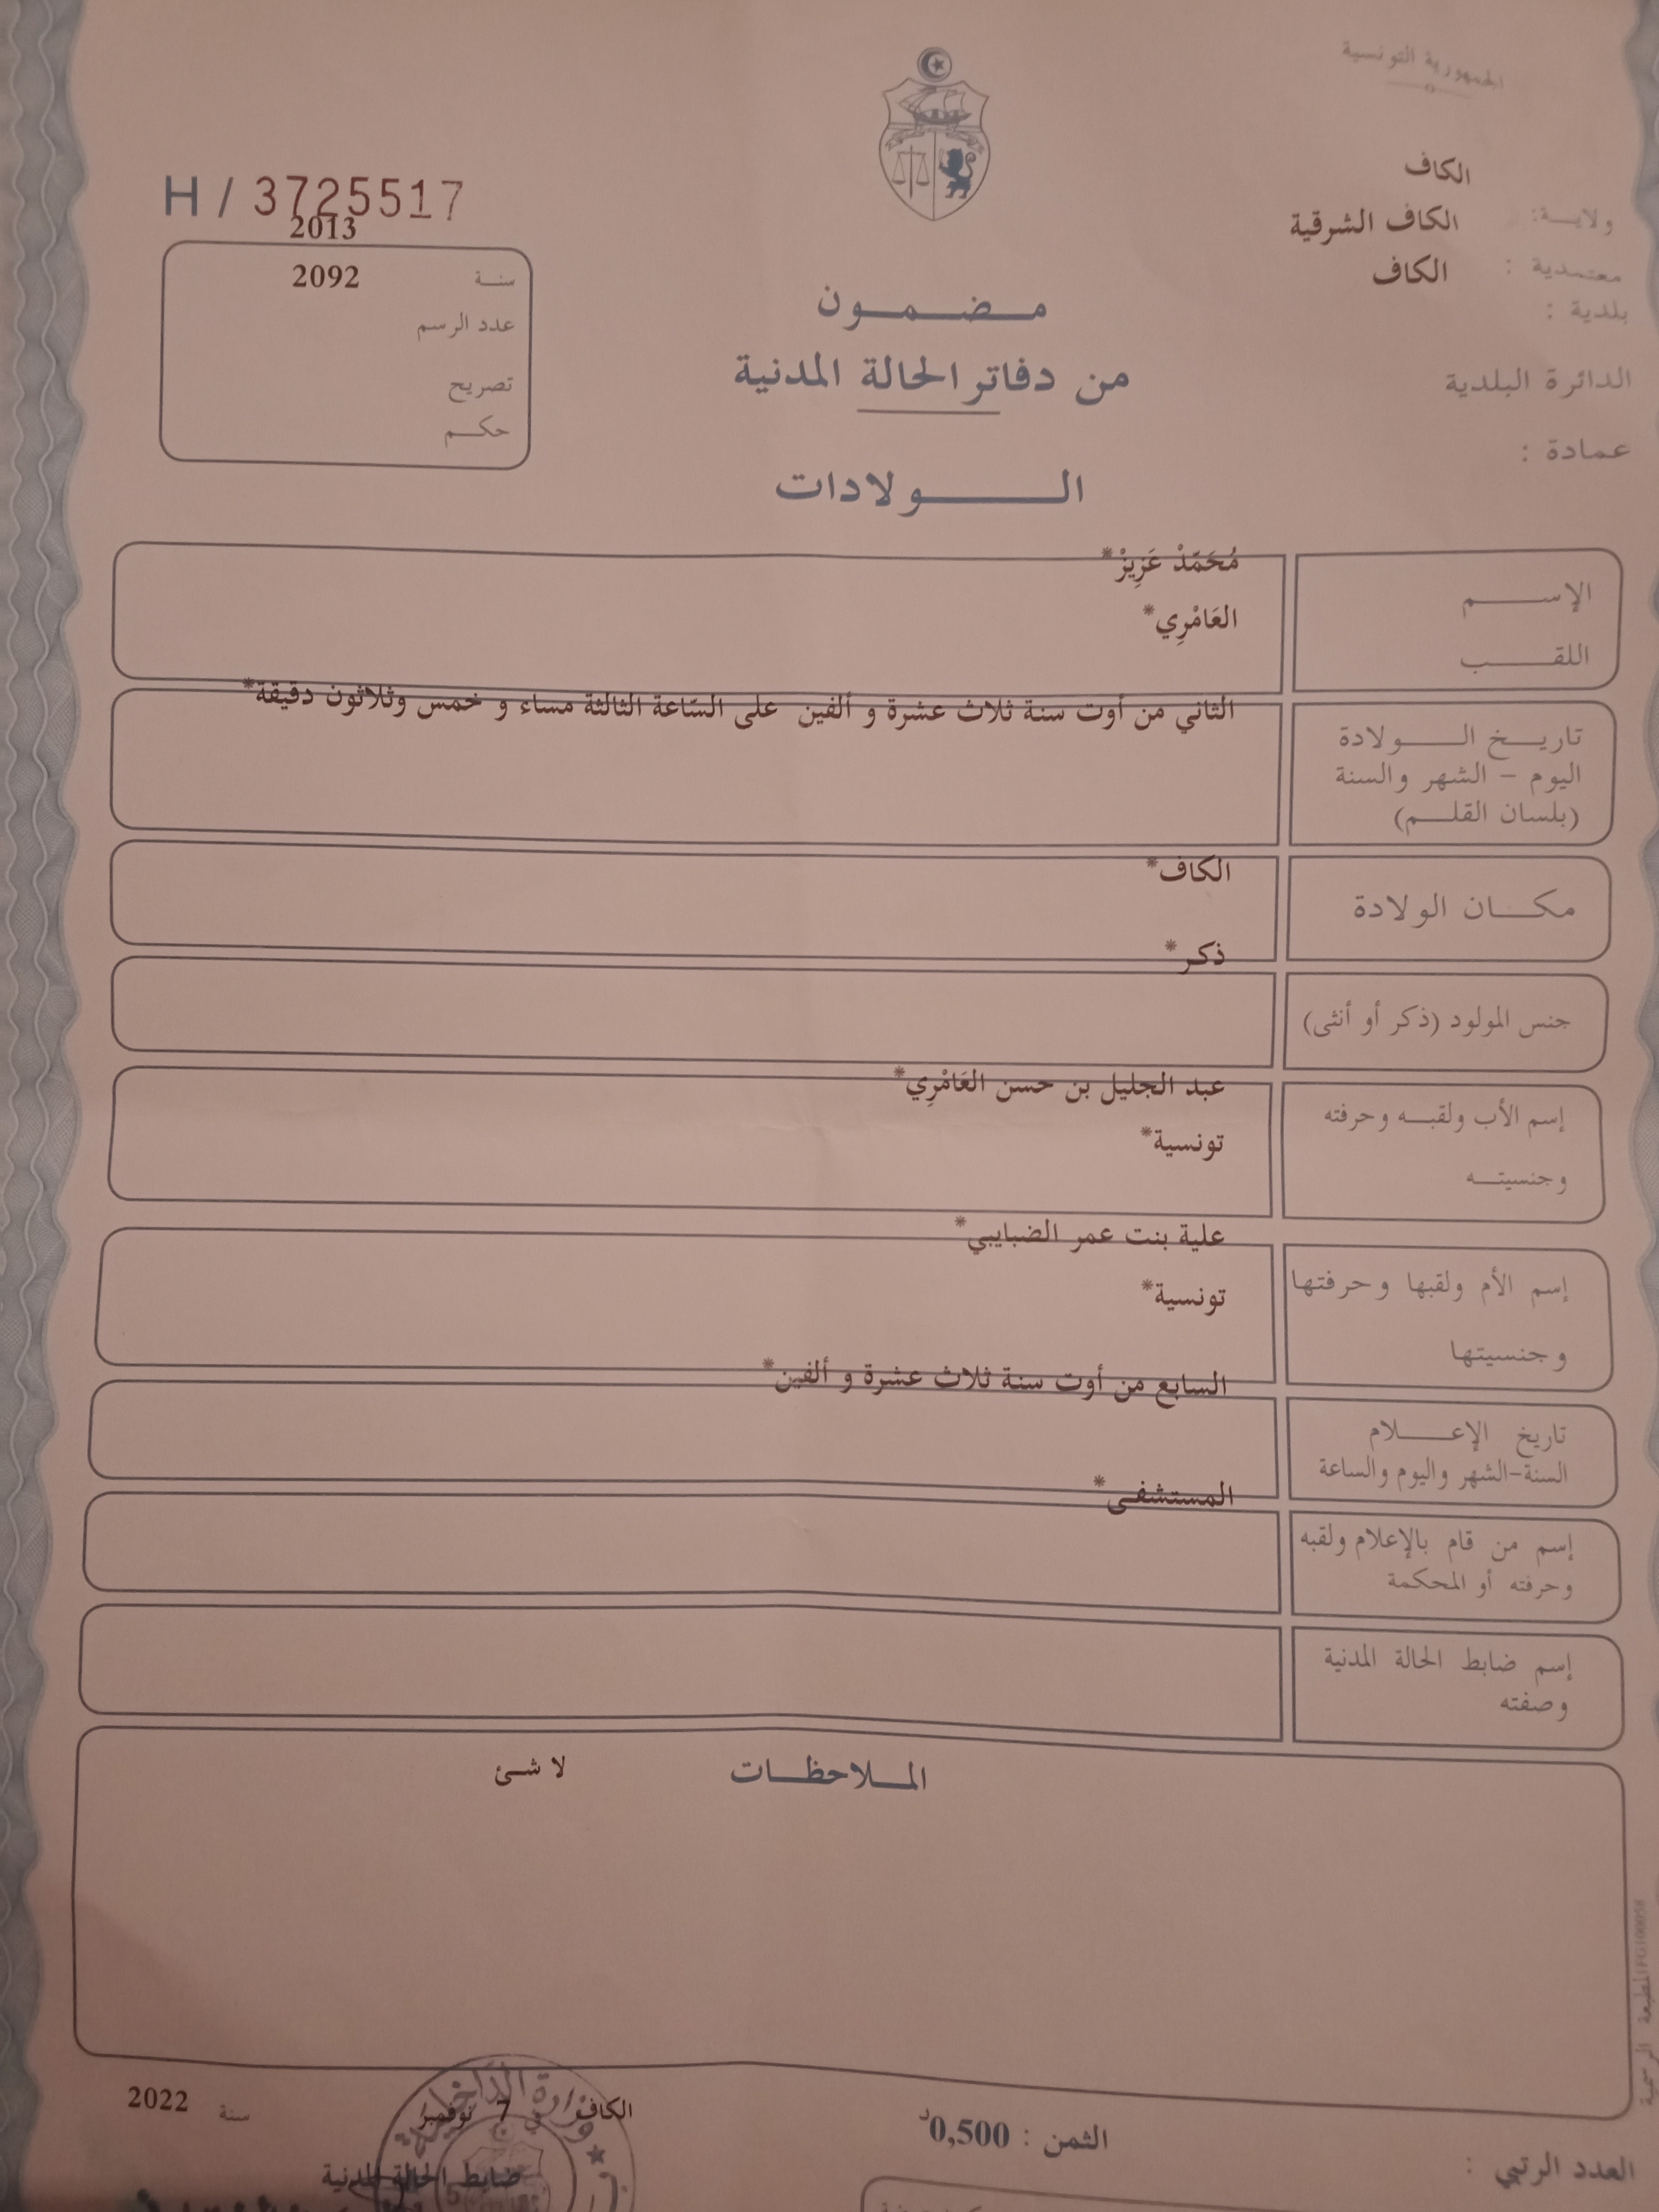 الجمهورية التونسية
ولايــة: الكاف
معتمدية : الكاف الشرقية
بلدية : الكاف
الدائرة البلدية
عمادة :
H / 3725517
2013
سنـة 2092
عدد الرسم
تصريح
حكـم
مـضـمـون
من دفاتر الحالة المدنية
الـولادات
الإسـم
مُحَمّدْ عَزِيزْ*
اللقـب
العَامْرِي*
تاريـخ الـولادة
اليوم - الشهر والسنة
(بلسان القلـم)
الثاني من أوت سنة ثلاث عشرة و ألفين على السّاعة الثالثة مساء و خمس وثلاثون دقيقة*
مكـان الولادة
الكاف*
جنس المولود (ذكر أو أنثى)
ذكر*
إسم الأب ولقبـه وحرفته
عبد الجليل بن حسن العَامْرِي*
وجنسيتـه
تونسية*
إسم الأم ولقبها وحرفتها
علية بنت عمر الضبايبي*
وجنسيتها
تونسية*
تاريخ الإعـلام
السنة-الشهر واليوم والساعة
السابع من أوت سنة ثلاث عشرة و ألفين*
إسم من قام بالإعلام ولقبه
وحرفته أو المحكمة
المستشفى*
إسم ضابط الحالة المدنية
وصفته
المـلاحظـات
لا شئ
الكاف في 7 نوفمبر سنة 2022
ضابط الحالة المدنية
وزارة الداخلية
الثمن : 0,500د
العدد الرتبي :
المطبعة الرسمية